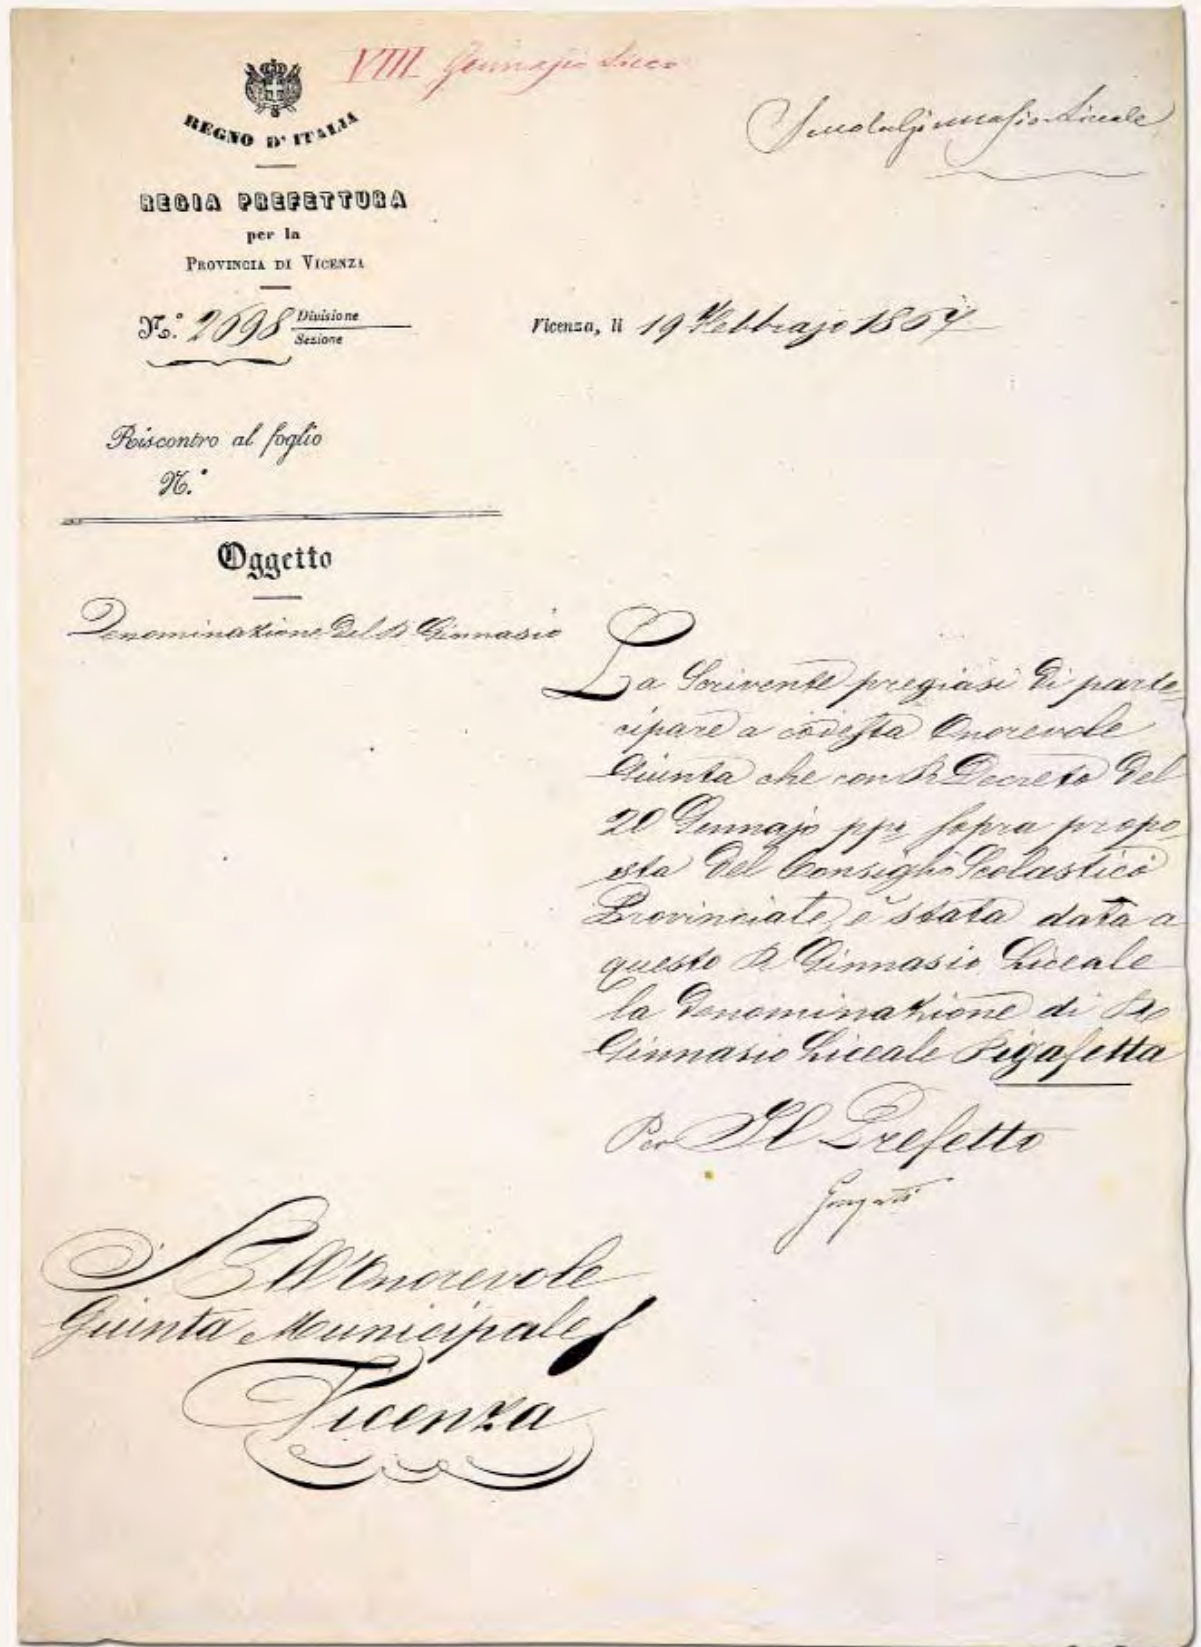 VIII Ginnasio Liceo
Scuola Ginnasio Liceale
REGNO D'ITALIA
REGIA PREFETTURA
per la
PROVINCIA DI VICENZA
N.º 2698 Divisione
Sezione
Vicenza, li 19 Febbrajo 1867
Riscontro al foglio
N.º
Oggetto
Denominazione del R. Ginnasio
La Scrivente pregiasi di parte-
cipare a codesta Onorevole
Giunta che con R. Decreto del
20 Gennajo pp. sopra propo-
sta del Consiglio Scolastico
Provinciale, è stata data a
questo R. Ginnasio Liceale
la denominazione di R.
Ginnasio Liceale Pigafetta
Per Il Prefetto
All'Onorevole
Giunta Municipale
Vicenza